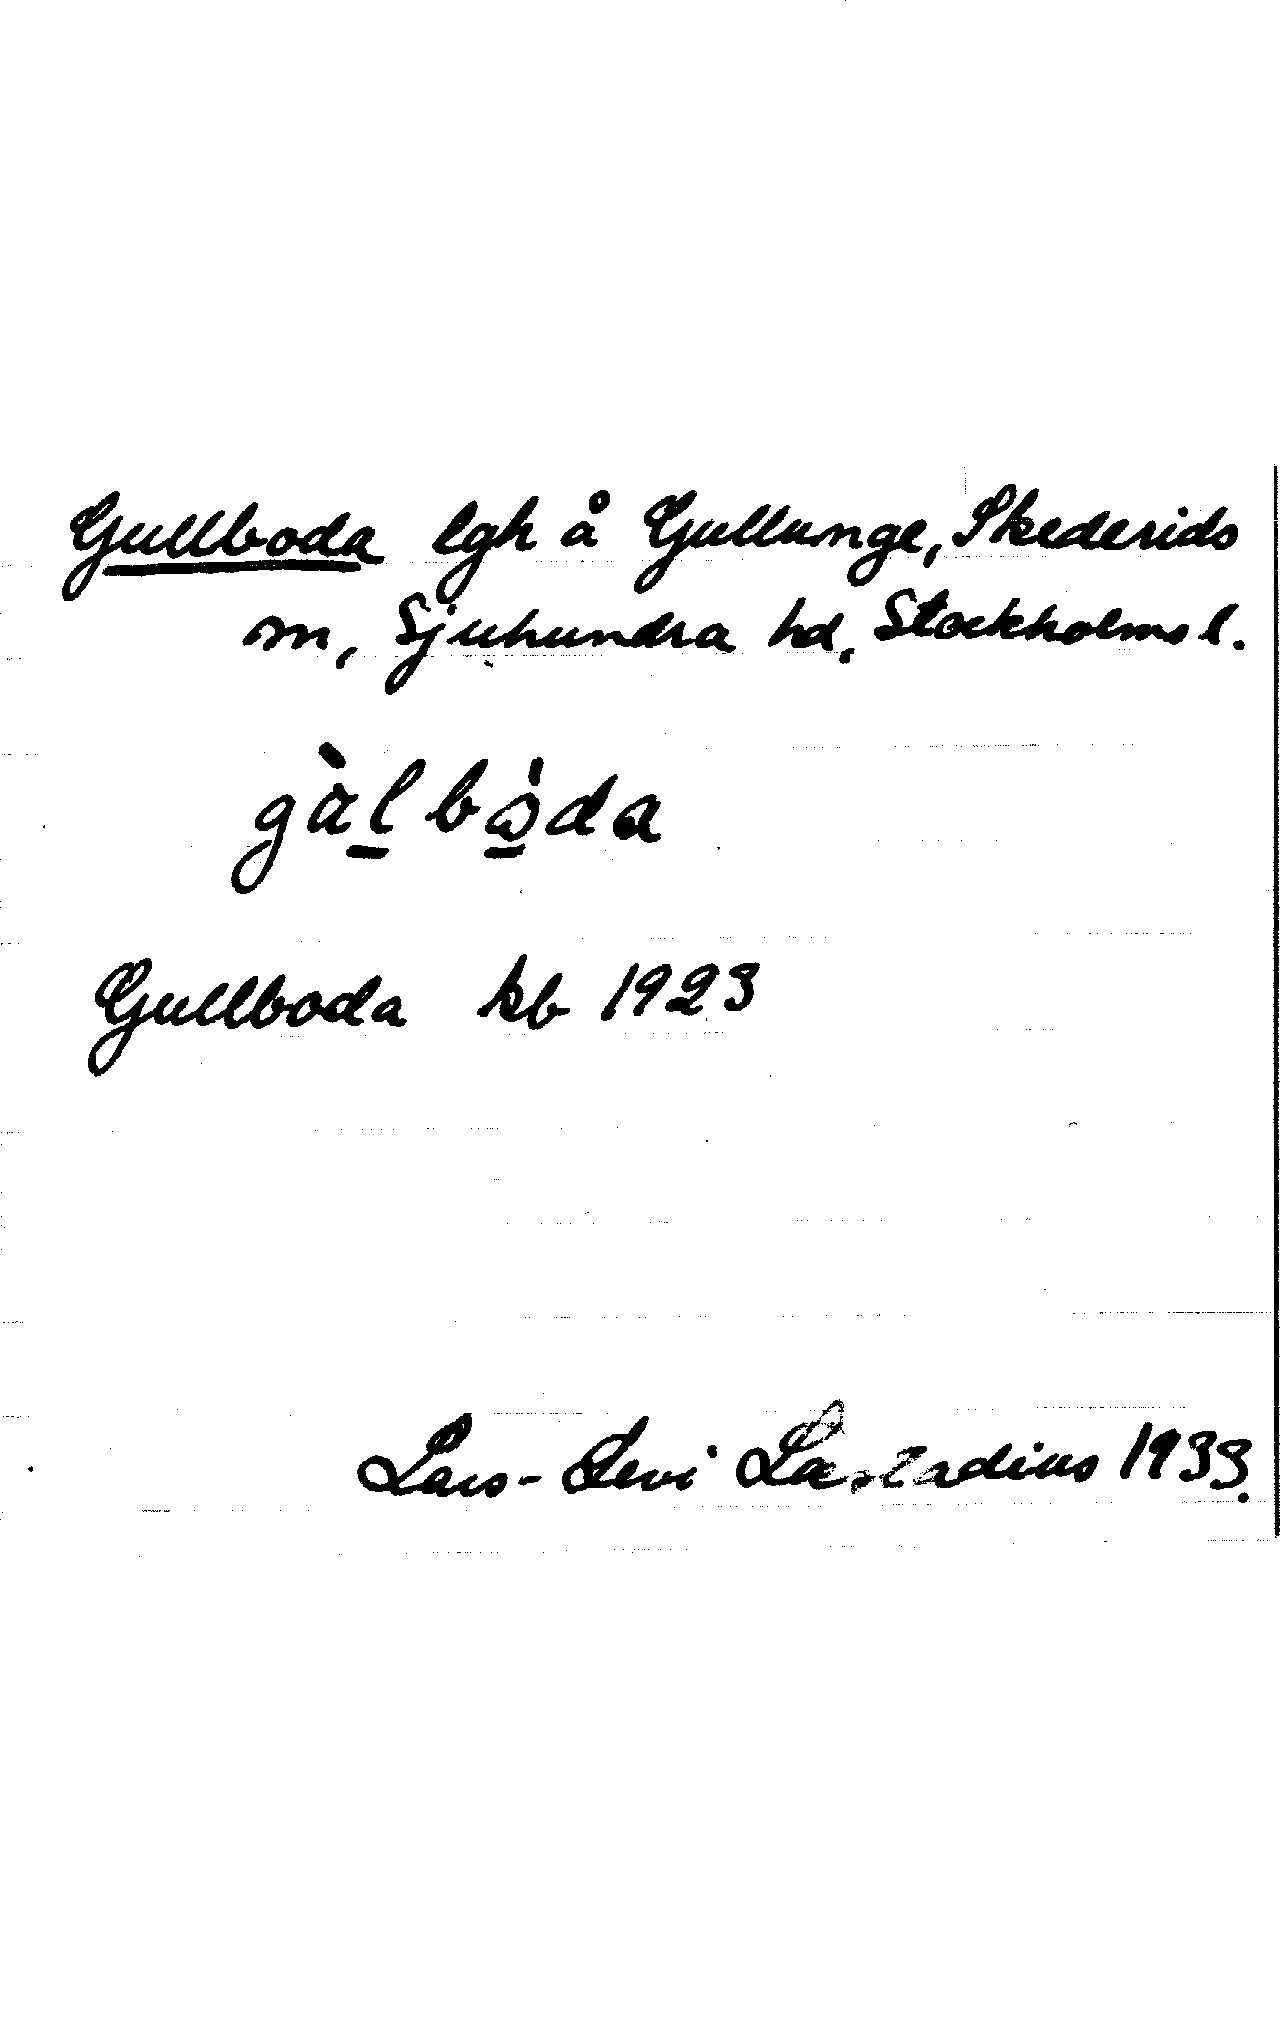 Gullboda lgh å Gullunge, Skederids
sn, Sjuhundra hd, Stockholms l.
gàl bòda
Gullboda kb 1923
Lars-Levi Læstadius 1933.